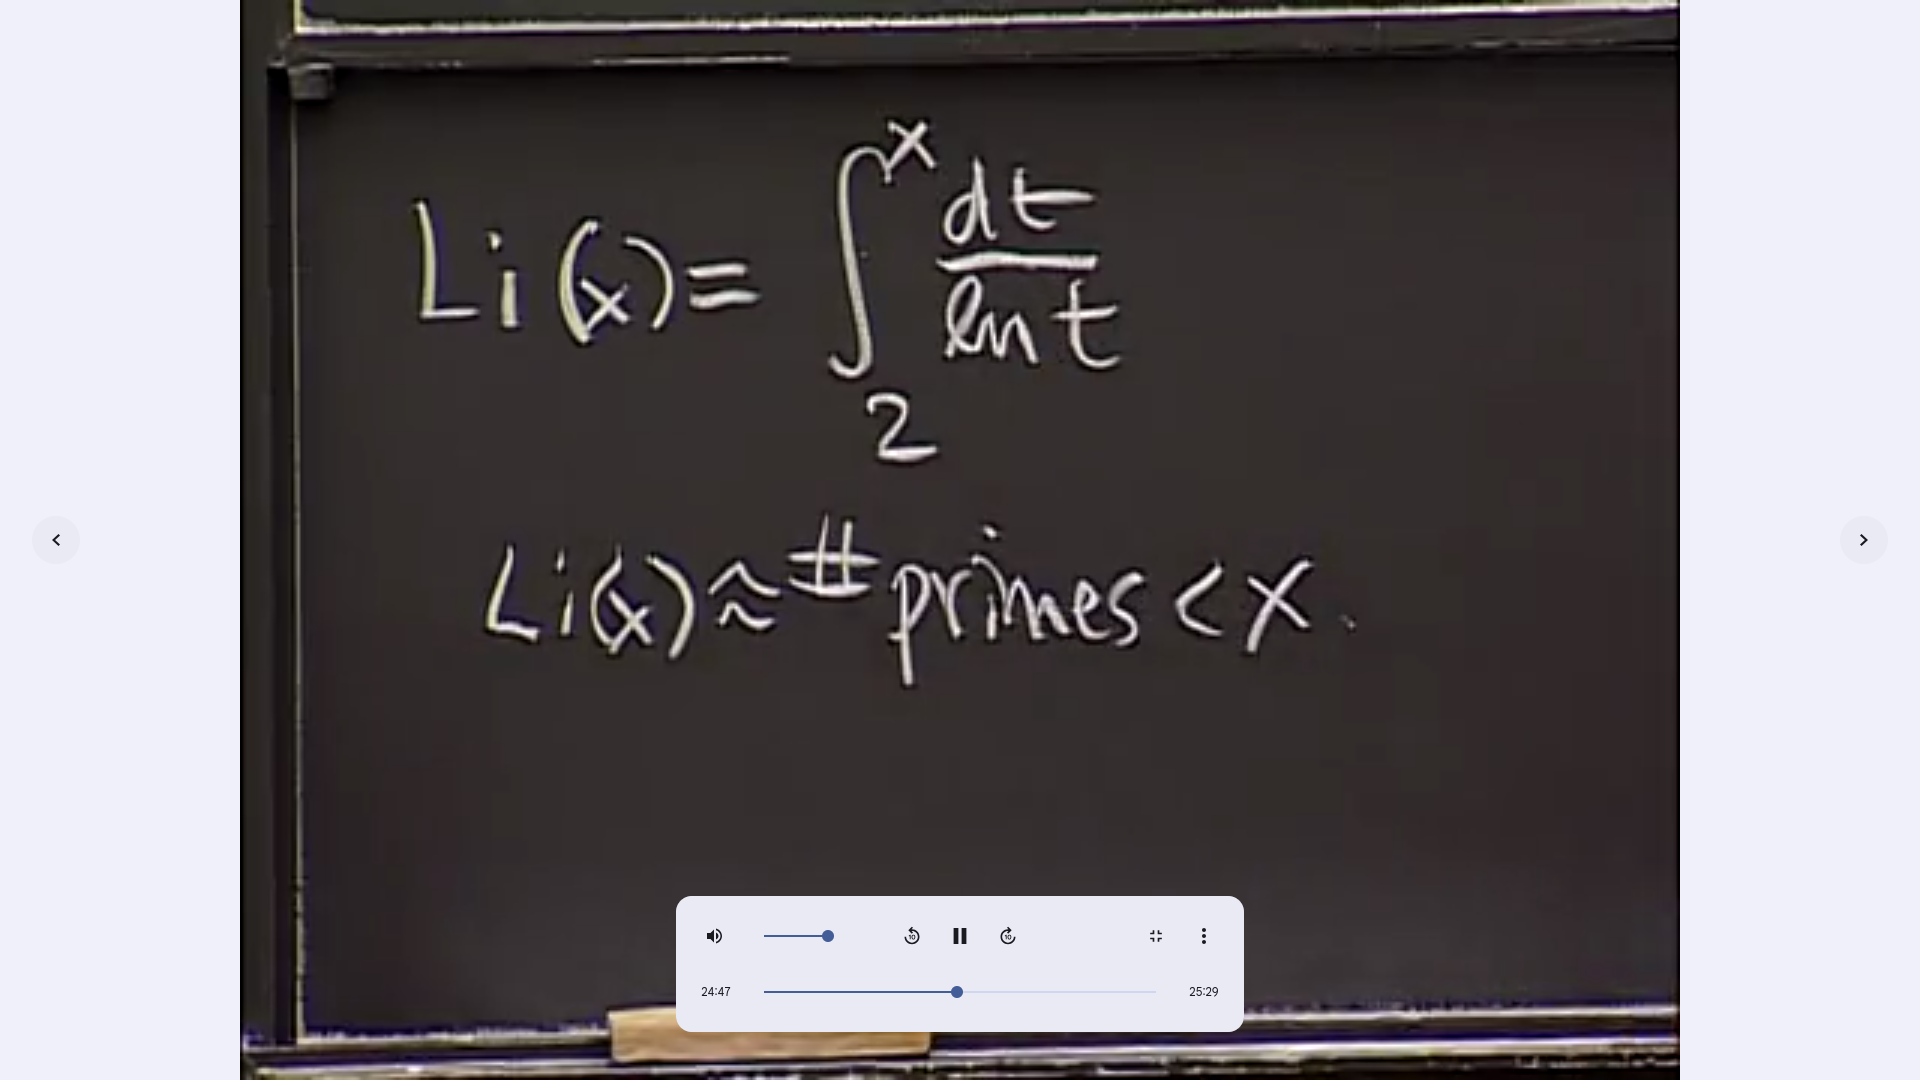 Li(x) = ∫₂ˣ dt/ln t
Li(x) ≈ # primes < x.
10
10
24:47
25:29